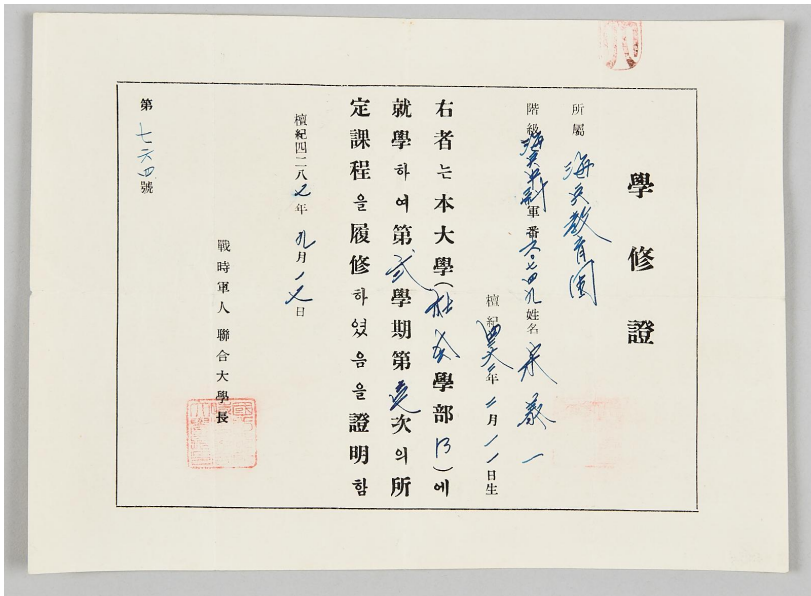 學修證
所屬 海兵教育團
階級 海兵 軍番 六〇七四九 姓名 宋 義 一
檀紀 年 二月 一一日生
右者는本大學( 學部 B)에
就學하여第貳學期第壹次의所
定課程을履修하였음을證明함
檀紀四二八七年 九月 一七日
戰時軍人 聯合大學長
第七六四號